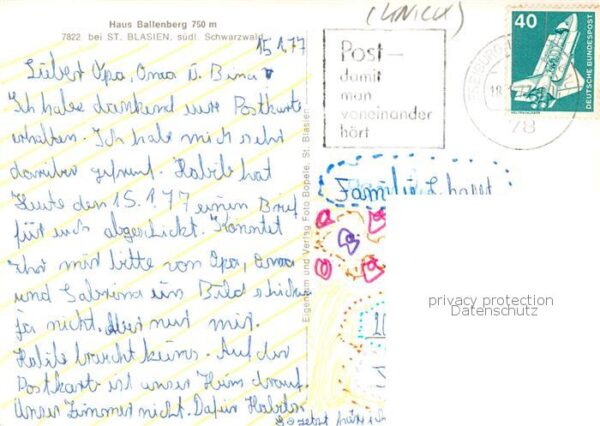 Haus Ballenberg 750 m
7822 bei ST. BLASIEN, südl. Schwarzwald
15.1.77
Lieber Opa, Oma u. Bina
Ich habe dankend eure Postkarte
erhalten. Ich habe mich sehr
darüber gefreut. Habile hat
Heute den 15.1.77 einen Brief
für euch abgeschickt. Könntet
Ihr mir bitte von Opa, Oma
und Sabrina ein Bild schicken
ja nicht. Aber nur mir.
Habile braucht keins. Auf der
Postkarte ist unser Heim drauf.
Unser Zimmer nicht. Dafür
Eigentum und Verlag Foto Bopele, St. Blasien
Post-
damit
man
voneinander
hört
40
DEUTSCHE BUNDESPOST
18.
78
Familie
privacy protection
Datenschutz